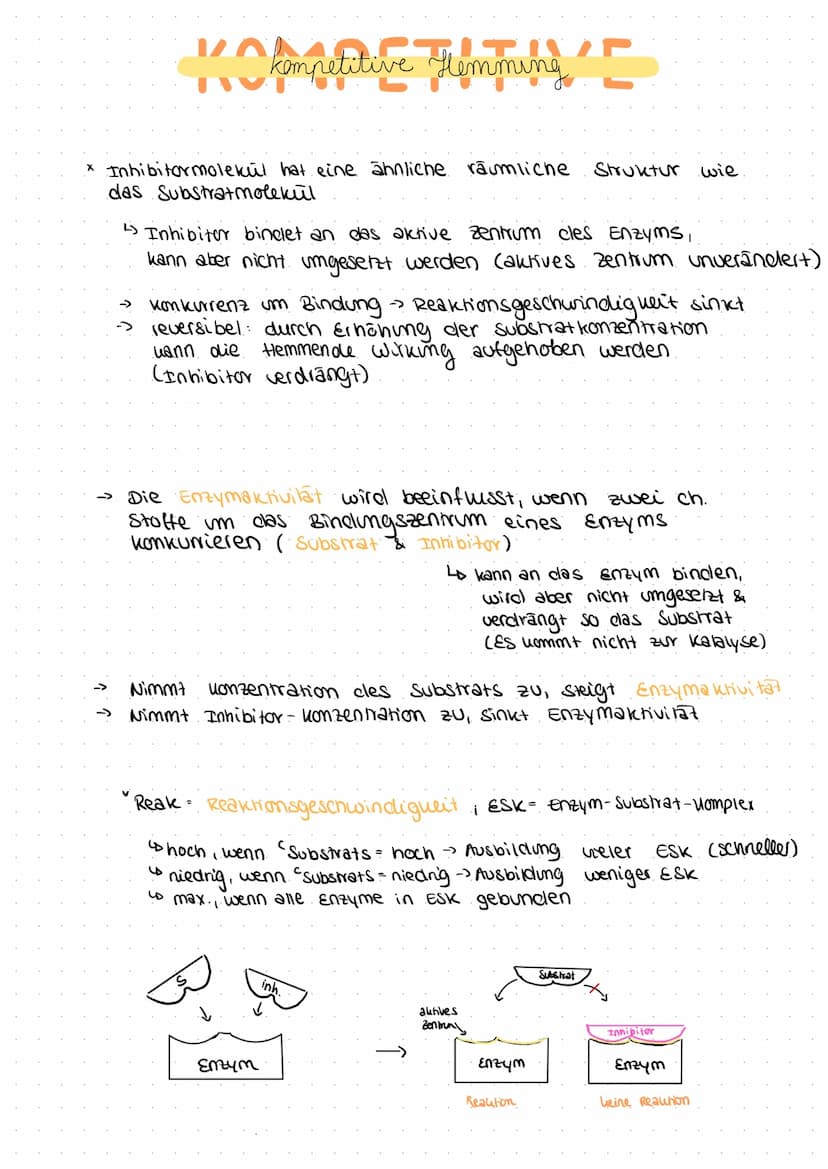 KOMPETITIVE
kompetitive Hemmung
x Inhibitormolekül hat eine ähnliche räumliche Struktur wie
das Substratmolekül
↳ Inhibitor bindet an das aktive Zentrum des Enzyms,
kann aber nicht umgesetzt werden (aktives Zentrum unverändert)
→ Konkurrenz um Bindung → Reaktionsgeschwindigkeit sinkt
→ reversibel: durch Erhöhung der Substratkonzentration
kann die Hemmende Wirkung aufgehoben werden
(Inhibitor verdrängt)
→ Die Enzymaktivität wird beeinflusst, wenn zwei ch.
Stoffe um das Bindungszentrum eines Enzyms
konkurieren (Substrat & Inhibitor)
↳ kann an das Enzym binden,
wird aber nicht umgesetzt &
verdrängt so das Substrat
(Es kommt nicht zur Katalyse)
→ Nimmt Konzentration des Substrats zu, steigt Enzymaktivität
→ Nimmt Inhibitor-Konzentration zu, sinkt Enzymaktivität
v Reak = Reaktionsgeschwindigkeit ; ESK = Enzym-Substrat-Komplex
↳ hoch, wenn c Substrats = hoch → Ausbildung vieler ESK (schneller)
↳ niedrig, wenn c Substrats = niedrig → Ausbildung weniger ESK
↳ max., wenn alle Enzyme in ESK gebunden
S
inh.
Enzym
→
Substrat
aktives
Zentrum
Enzym
Reaktion
Inhibitor
Enzym
keine Reaktion